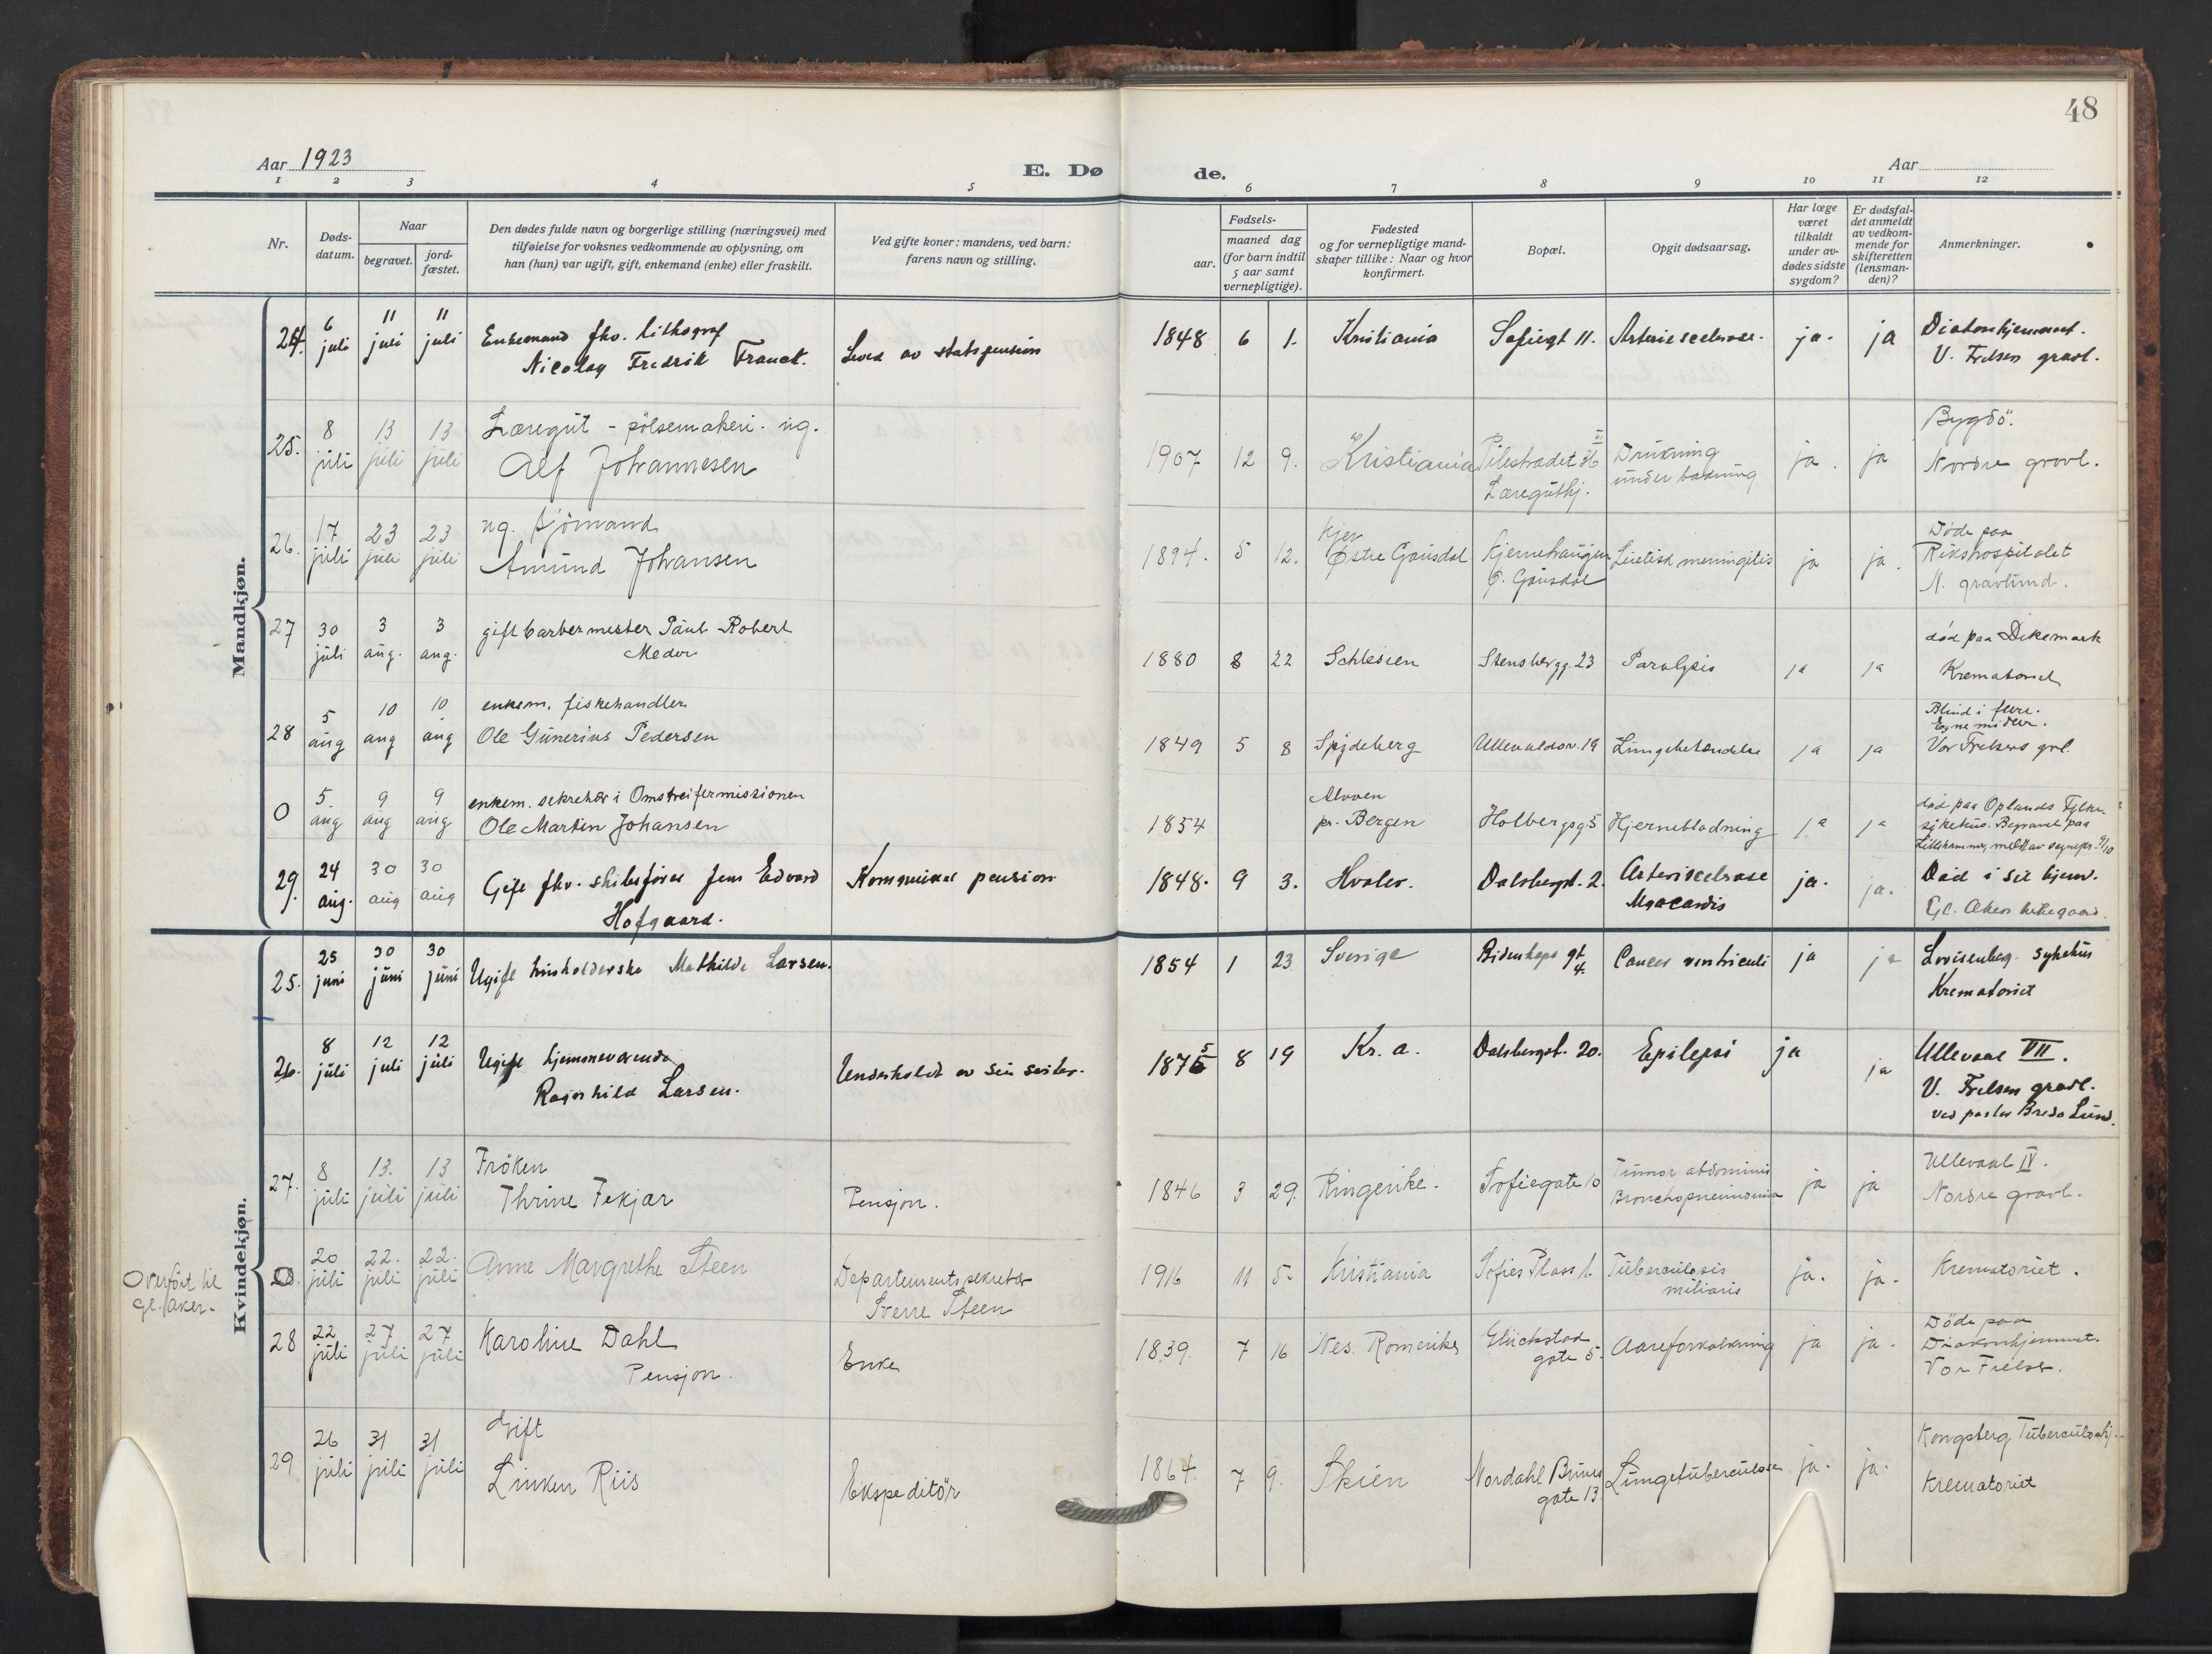 48
Aar 1923
E. Dø
de.
Aar
1 2 3 4 5 6 7 8 9 10 11 12
Nr.
Døds-
datum.
Naar
begravet.
jord-
fæstet.
Den dødes fulde navn og borgerlige stilling (næringsvei) med
tilføielse for voksnes vedkommende av oplysning, om
han (hun) var ugift, gift, enkemand (enke) eller fraskilt.
Ved gifte koner: mandens, ved barn:
farens navn og stilling.
Fødsels-
aar.
maaned dag
(for barn indtil
5 aar samt
vernepligtige).
Fødested
og for vernepligtige mand-
skaper tillike: Naar og hvor
konfirmert.
Bopæl.
Opgit dødsaarsag.
Har læge
været
tilkaldt
under av-
dødes sidste
sygdom?
Er dødsfal-
det anmeldt
av vedkom-
mende for
skifteretten
(lensman-
den)?
Anmerkninger.
Mandkjøn.
24. 6 juli 11 juli 11 juli
Enkemand fhv. lithograf
Nicolay Fredrik Franck.
Levet av statspension
1848 6 1. Kristiania
Sofiegt 11.
ja. ja
Diakonhjemmet.
V. Frelsers gravl.
25. 8 juli 13 juli 13 juli
Læregut - pölsemakeri. ug.
Alf Johannesen
1907 12 9. Kristiania
Pilestrædet 36
Læreguthj.
Drukning
under badning
ja. ja
Bygdö.
Nordre gravl.
26. 17 juli 23 juli 23 juli
ug. sjömand
Amund Johansen
1894. 5 12.
Østre Gausdal
Kjernehaugen
Ø. Gausdal
Luetisk meningitis
ja ja.
Døde paa
Rikshospitalet
N. gravlund.
27 30 juli 3 aug. 3 aug.
gift barbermester Paul Robert
Meder
1880 8 22 Schlesien
Stensbergg. 23
Paralysis
ja ja
død paa Dikemark
Krematoriet
28 5 aug 10 aug 10 aug
enkem. fiskehandler
Ole Gunerius Pedersen
1849 5 8 Spydeberg
Ullevaldsv. 19
Lungebetændelse
ja ja
Blind i flere.
Egne midler.
Vor Frelsers grl.
0 5. aug 9 aug 9 aug
enkem. sekretær i Omstreifermissionen
Ole Martin Johansen
1854
Alvøen
pr. Bergen
Holbergsg. 5
Hjerneblødning
ja ja
död paa Oplands Fylke-
sykehus. Begravet paa
Lillehammer, meldt av sognepr. 9/10
29. 24 aug. 30 aug 30 aug
Gift fhv. skibsförer Jens Edvard
Hofgaard.
Kommunal pension
1848. 9 3. Hvaler.
Dalsbergst. 2.
ja. ja.
Död i sit hjem.
Gl. Aker kirkegaard.
Kvindekjøn.
25. 25 juni 30 juni 30 juni
Ugift husholderske Mathilde Larsen.
1854 1 23 Sverige
Bidenkaps gt 4.
Cancer ventriculi
ja ja
Lovisenberg sykehus
Krematoriet
26. 8 juli 12 juli 12 juli
Ugift hjemmeværende
Ragnhild Larsen.
Underholdt av sin søster.
1875 8 19 Kr. a.
Dalsbergst. 20.
Epilepsi
ja ja
Ullevaal VII.
V. Frelsers gravl.
ved pastor Bredo Lund.
27. 8 juli 13. juli 13 juli
Fröken
Thrine Fekjær
Pensjon.
1846 3 29. Ringerike.
Sofiegate 10
Tumor abdominis
Bronchopneumonia
ja ja
Ullevaal IV.
Nordre gravl.
Overført til
gl. aker.
0. 20 juli 22. juli 22. juli
Anne Margrethe Steen
Departementssekretær
Sverre Steen
1916 11 5. Kristiania
Sofies Plass 1.
Tuberculosis
miliaris
ja. ja.
Krematoriet.
28 22 juli 27 juli 27 juli
Karoline Dahl
Pensjon.
Enke
1839. 7 16 Nes. Romerike
Glückstad
gate 5.
Aareforkalkning
ja ja.
Døde paa
Diakonhjemmet.
Vor Frelser.
29 26 juli 31 juli 31 juli
Gift
Linken Riis
Ekspeditör
1864. 7 9. Skien
Nordahl Bruns
gate 13.
Lungetuberculose
ja. ja.
Kongsberg Tuberculosehj.
Krematoriet